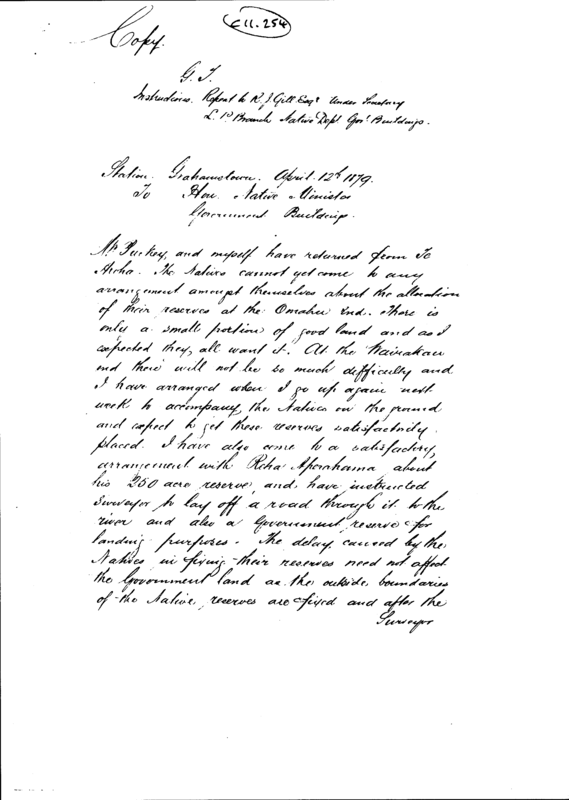 E11.254
Copy.
G. T.
Instructions. Report to R. J. Gill Esqr Under Secretary
L. P. Branch Native Dept. Govt Buildings.
Station. Grahamstown. April. 12th 1879.
To Hon. Native Minister
Government Buildings.
Mr Puckey, and myself have returned from Te
Aroha. The Natives cannot yet come to any
arrangement amongst themselves about the allocation
of their reserves at the Omahu end. There is
only a small portion of good land and as I
expected they, all want it. At the Wairakau
end there will not be so much difficulty and
I have arranged when I go up again next
week to accompany the Natives on the ground
and expect to get these reserves satisfactorily
placed. I have also come to a satisfactory,
arrangement with Reha Aperahama about
his 250 acre reserve, and have instructed
Surveyor to lay off a road through it to the
river and also a Government reserve for
landing purposes. The delay caused by the
Natives in fixing their reserves need not affect
the Government land as the outside boundaries
of the Native reserves are fixed and after the
Surveyor